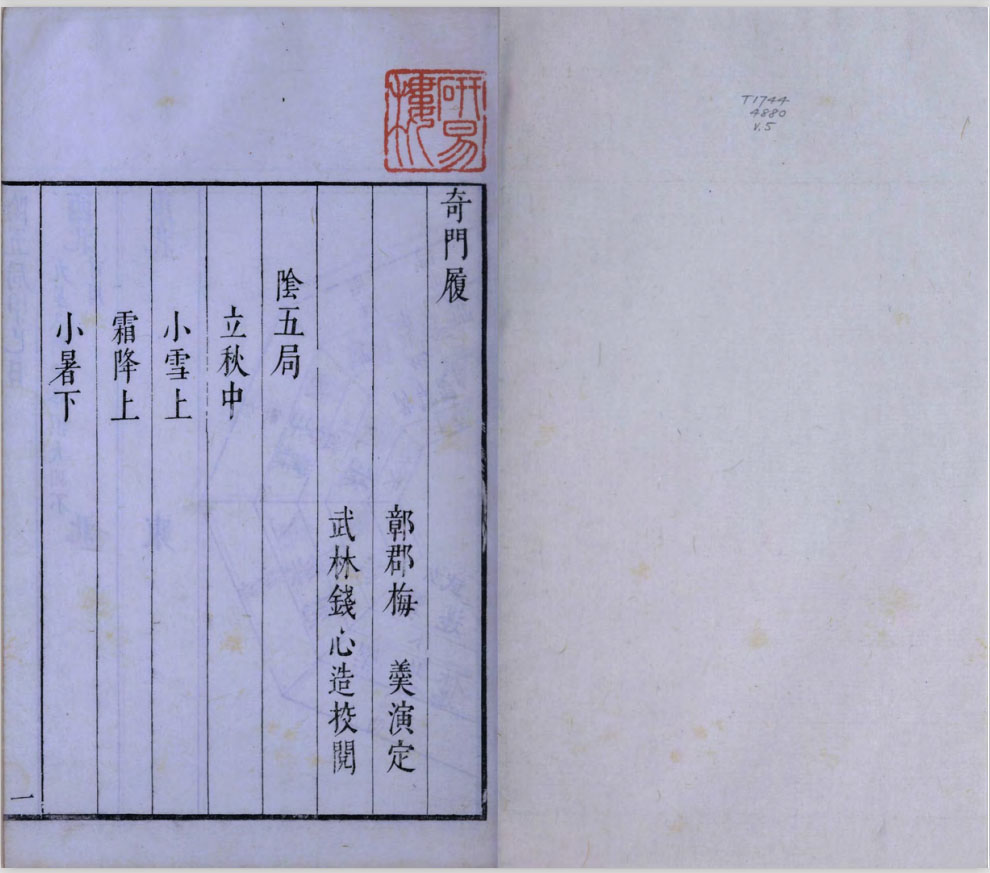 T1744
4880
v.5
研易樓
奇門履
鄣郡梅　羹演定
武林錢心造挍閱
陰五局
立秋中
小雪上
霜降上
小暑下
一